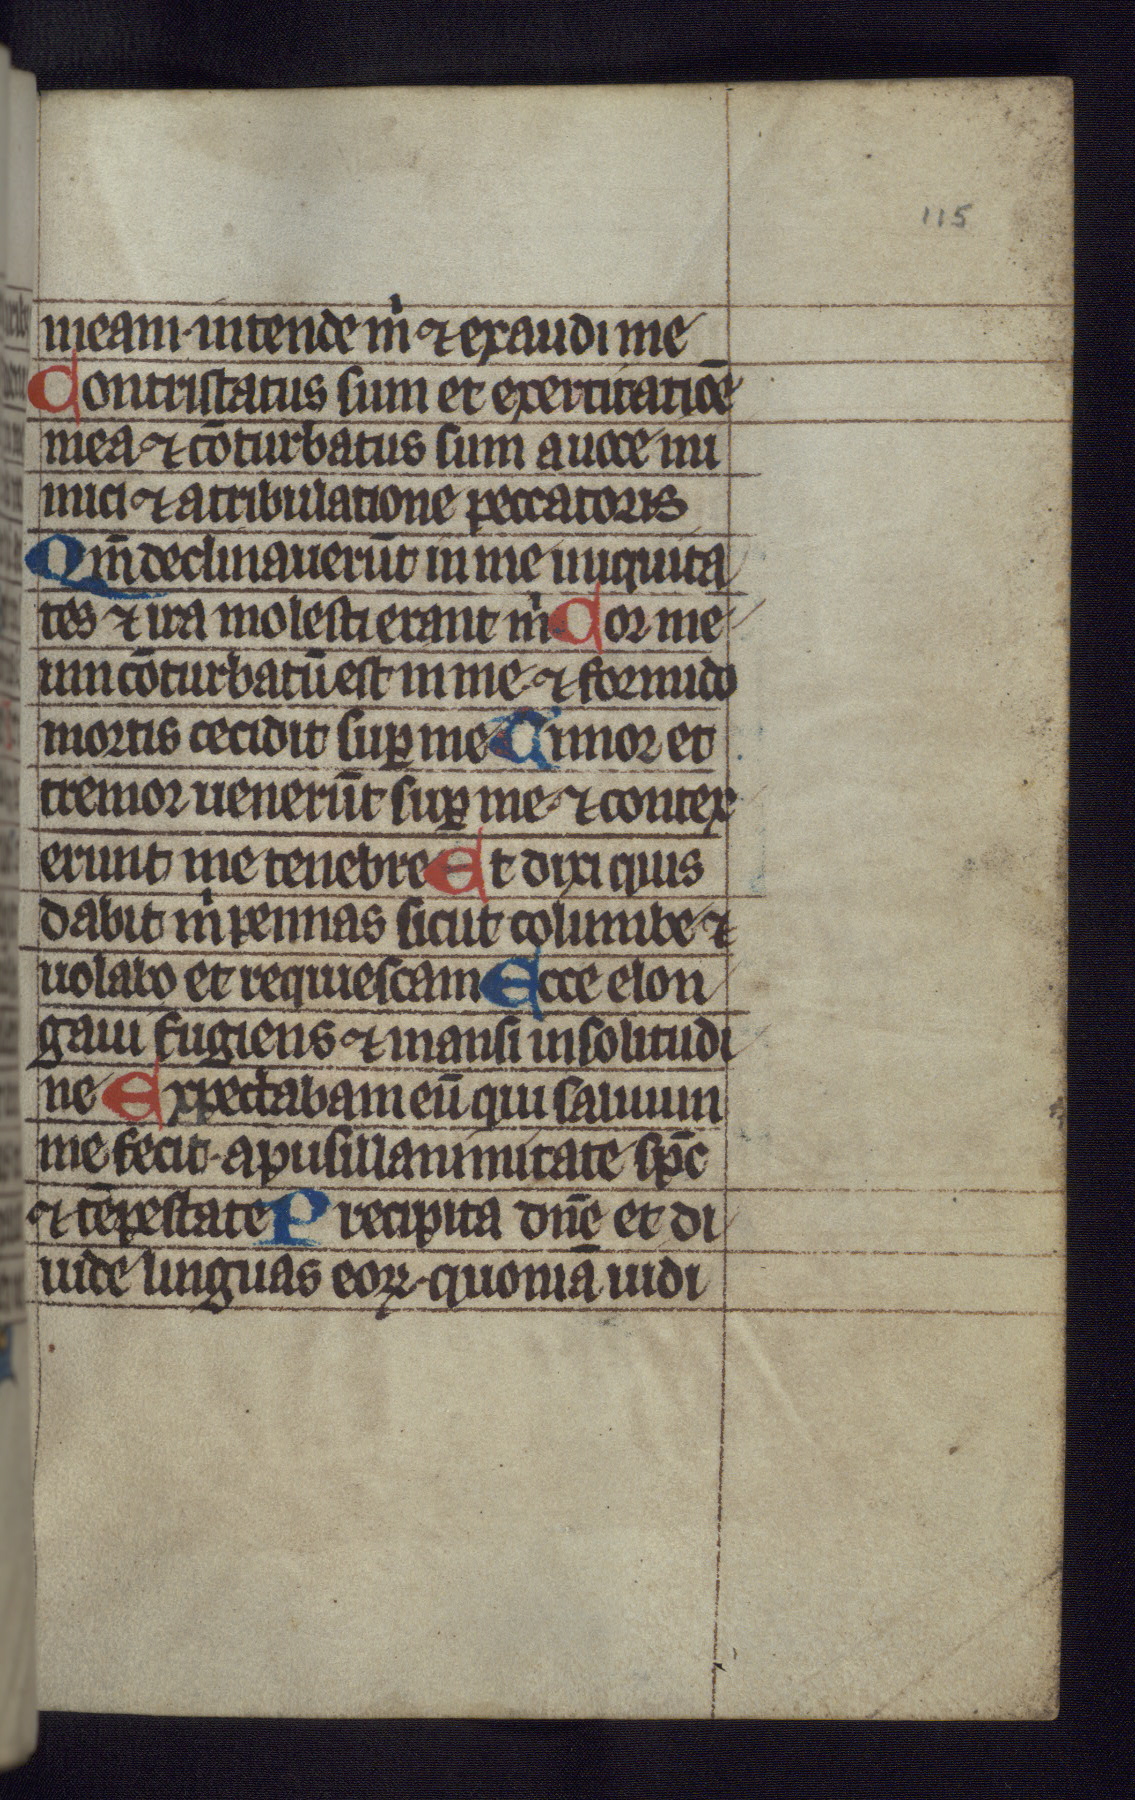 115
meam·intende m̍ ⁊ exaudi me
Contristatus sum et exercitatiōe
mea ⁊ cōturbatus sum auoce ini
mici ⁊ atribulatione peccatoris
Qm̄ declinauerūt in me iniquita
tes ⁊ ira molesti erant m̍ Cor me
um cōturbatū est in me·⁊ formido
mortis cecidit suꝑ me Timor et
tremor uenerūt suꝑ me·⁊ contex
erunt me tenebre Et dixi quis
dabit m̍ pennas sicut columbe ⁊
uolabo et requiescam Ecce elon
gaui fugiens ⁊ mansi insolitudi
ne Expectabam eū qui saluum
me fecit·apusillanimitate sp̄c
⁊ tēpestate Precipita dn̄e et di
uide linguas eoꝝ·quoniā uidi